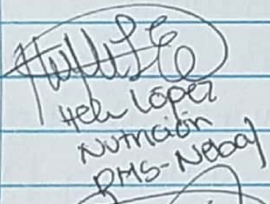 López
Nutrición
DMS-Nebaj